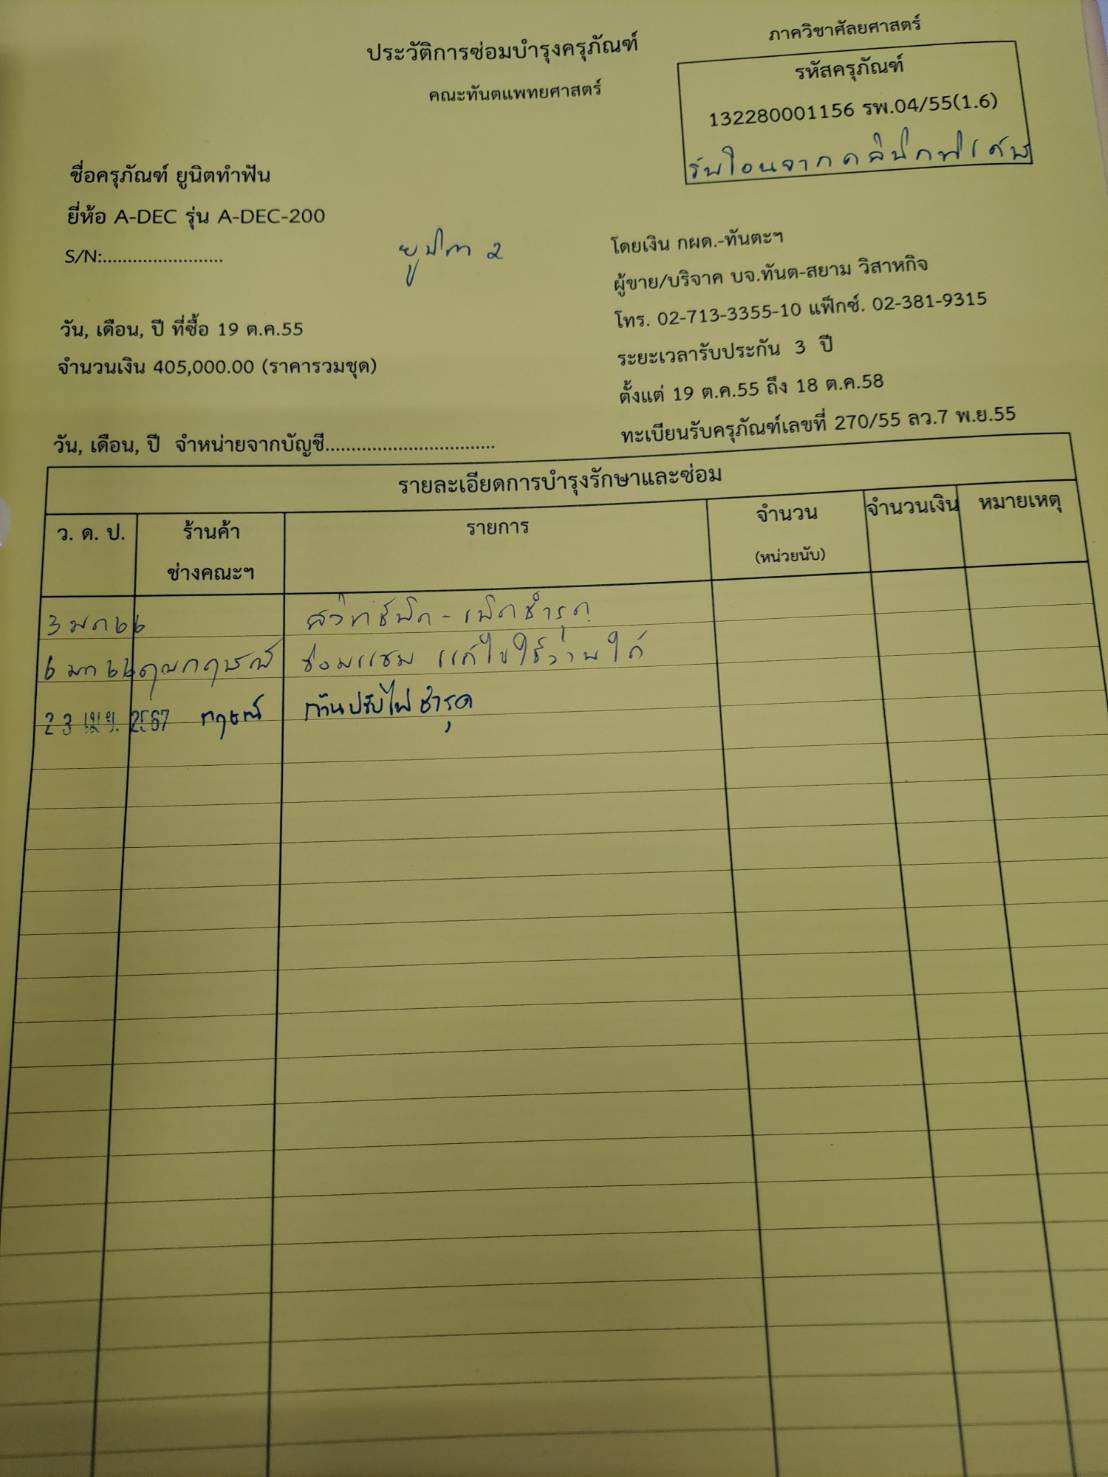 ภาควิชาศัลยศาสตร์
ประวัติการซ่อมบำรุงครุภัณฑ์
คณะทันตแพทยศาสตร์
รหัสครุภัณฑ์
132280001156 รพ.04/55(1.6)
รับโอนจากคลินิก
ชื่อครุภัณฑ์ ยูนิตทำฟัน
ยี่ห้อ A-DEC รุ่น A-DEC-200
S/N:........................
ยูนิต 2
โดยเงิน กผด.-ทันตะฯ
ผู้ขาย/บริจาค บจ.ทันต-สยาม วิสาหกิจ
โทร. 02-713-3355-10 แฟ็กซ์. 02-381-9315
วัน, เดือน, ปี ที่ซื้อ 19 ต.ค.55
จำนวนเงิน 405,000.00 (ราคารวมชุด)
ระยะเวลารับประกัน 3 ปี
ตั้งแต่ 19 ต.ค.55 ถึง 18 ต.ค.58
วัน, เดือน, ปี จำหน่ายจากบัญชี................................
ทะเบียนรับครุภัณฑ์เลขที่ 270/55 ลว.7 พ.ย.55
รายละเอียดการบำรุงรักษาและซ่อม
ว. ด. ป. ร้านค้า รายการ จำนวน จำนวนเงิน หมายเหตุ
ช่างคณะฯ (หน่วยนับ)
3 มค 66 สวิทช์ปิด - เปิดชำรุด
6 มค 66 คุณกฤษณ์ ซ่อมแซม แก้ไขใช้งานได้
23 เม.ย. 2567 กฤษณ์ ก้านปรับไฟชำรุด